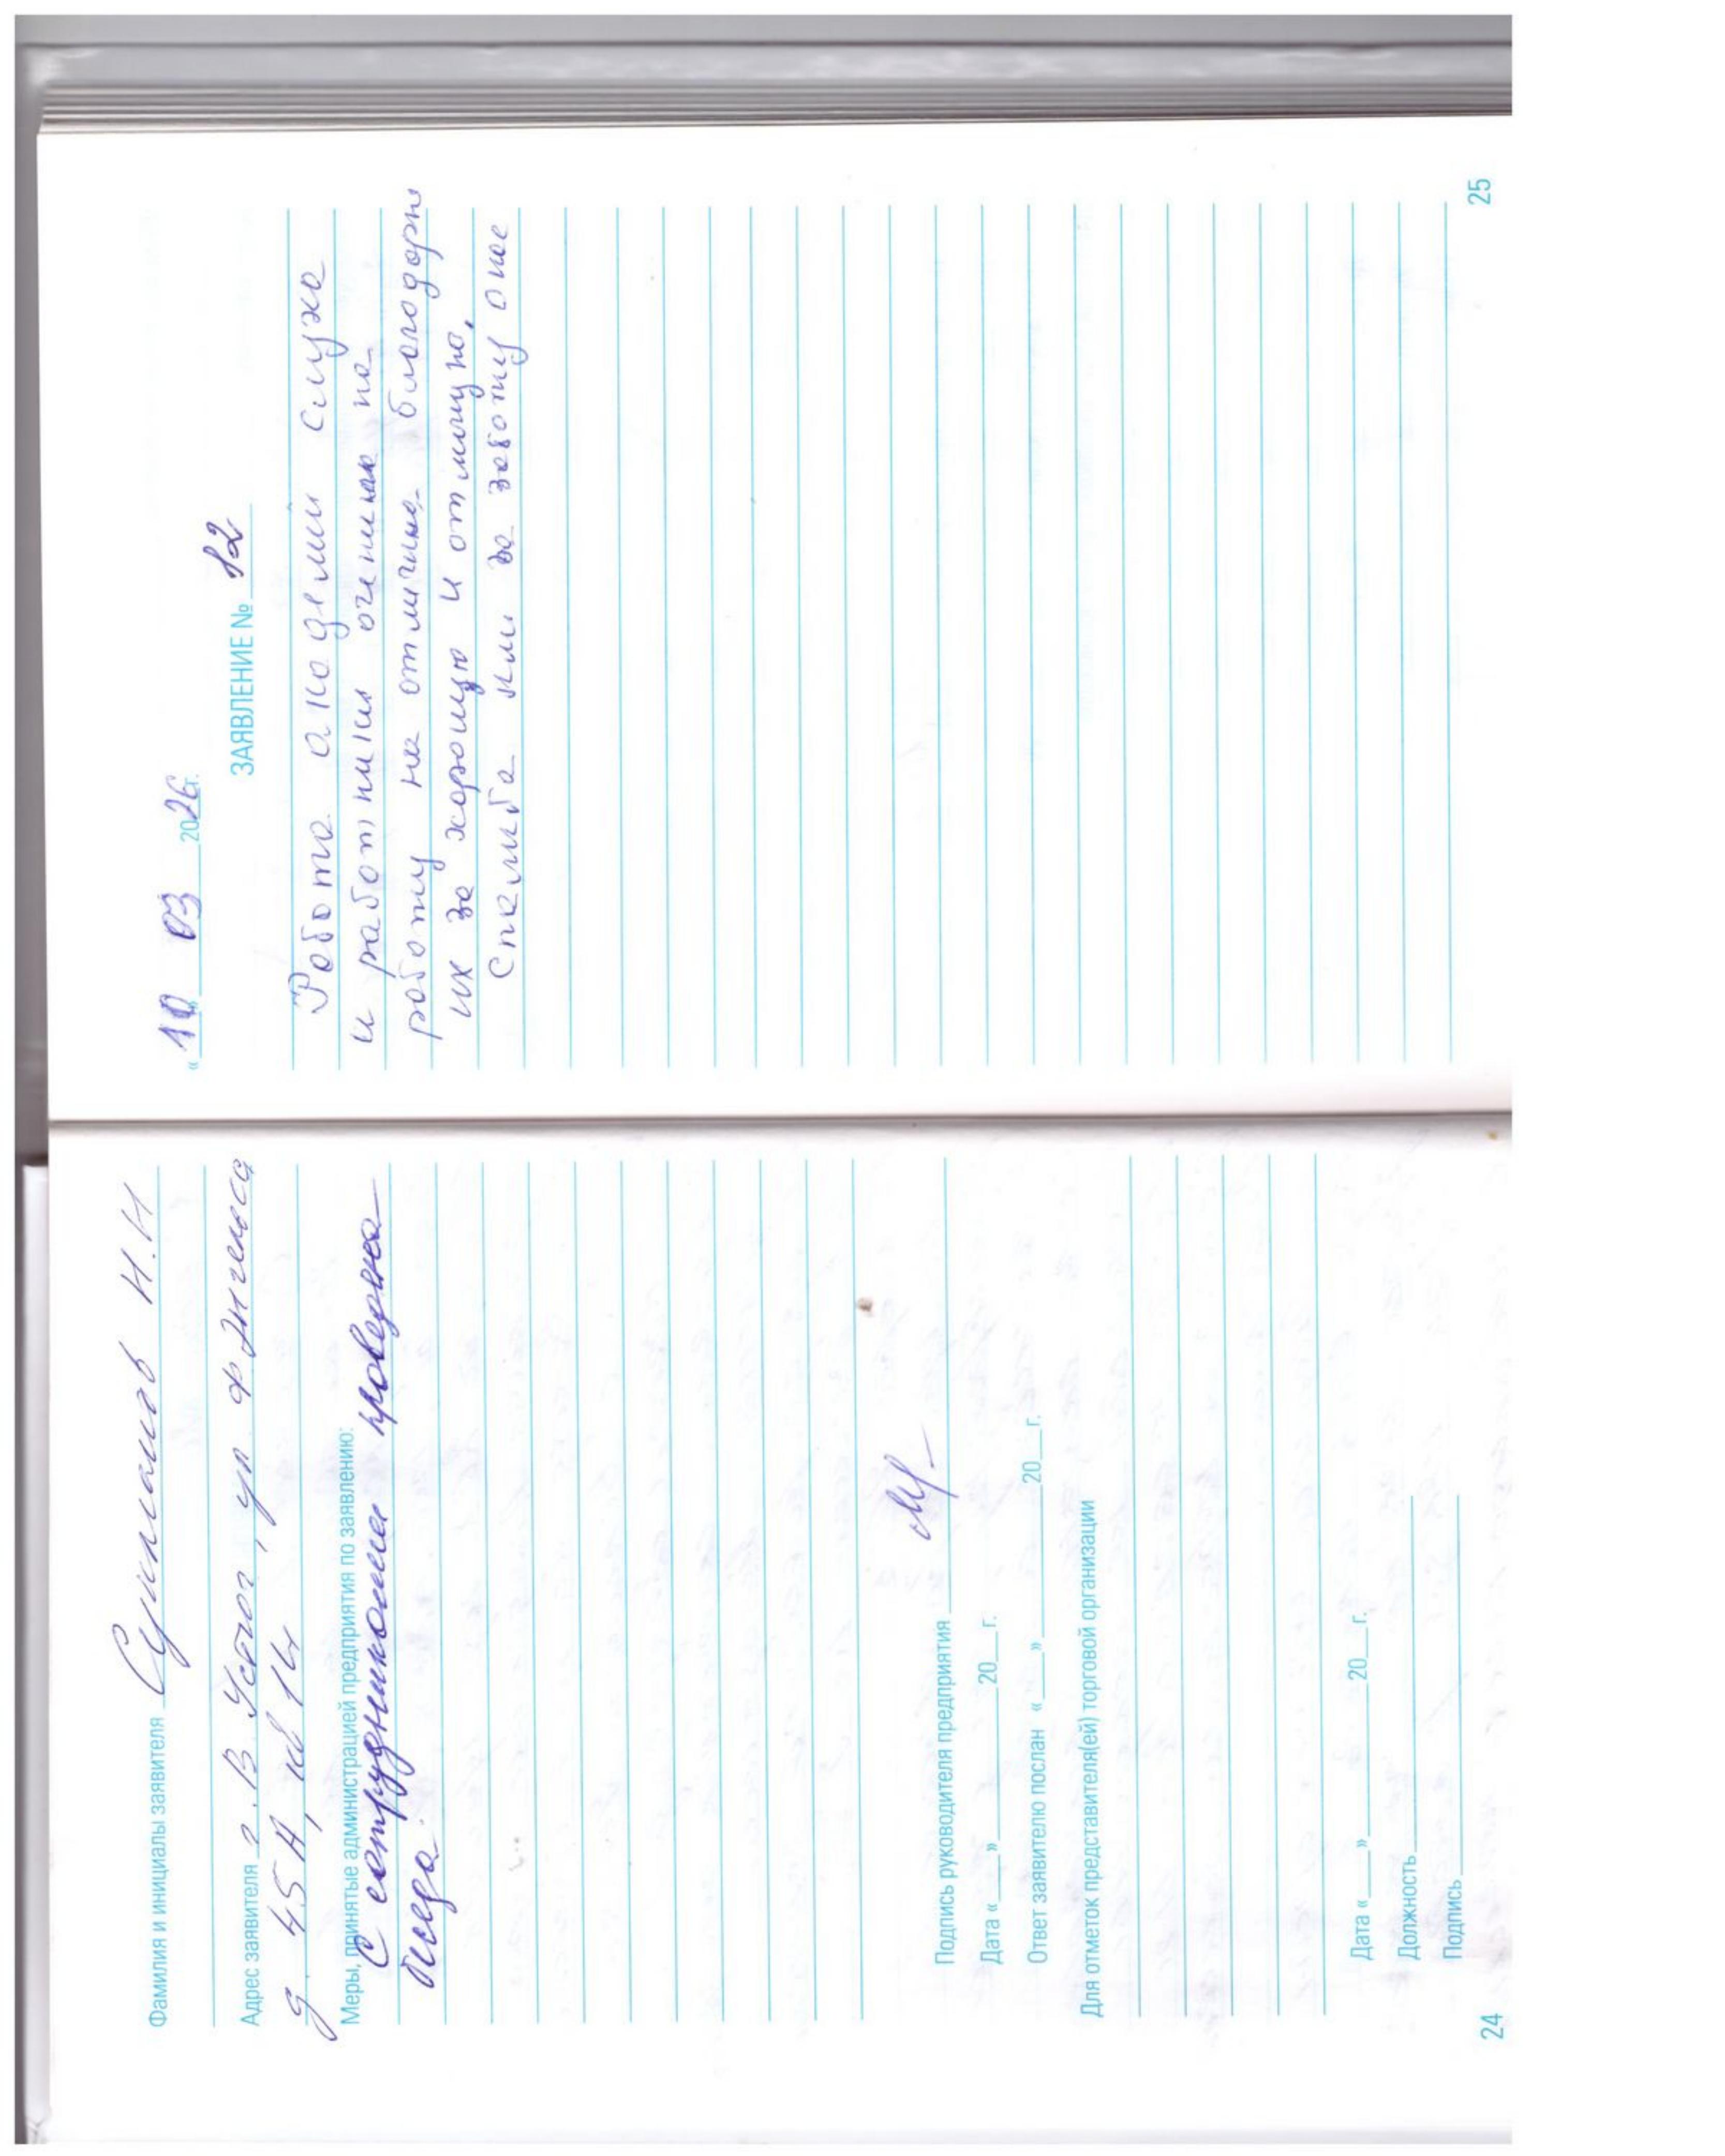 Фамилия и инициалы заявителя Н.Н
Адрес заявителя г. В Устюг, ул Ф Энгельса
д. 45 А, кв 14
Меры, принятые администрацией предприятия по заявлению:
С сотрудниками проведена
беседа.
Подпись руководителя предприятия
Дата «___»______20__г.
Ответ заявителю послан «___»______20__г.
Для отметок представителя(ей) торговой организации
Дата «___»______20__г.
Должность
Подпись
24
«10 03 2026г.
ЗАЯВЛЕНИЕ № 12
Работа академии слуха
и работники оцениваю на
работу на отлично. благодарю
их за хорошую и отличную.
Спасиба или за заботу о нас
25